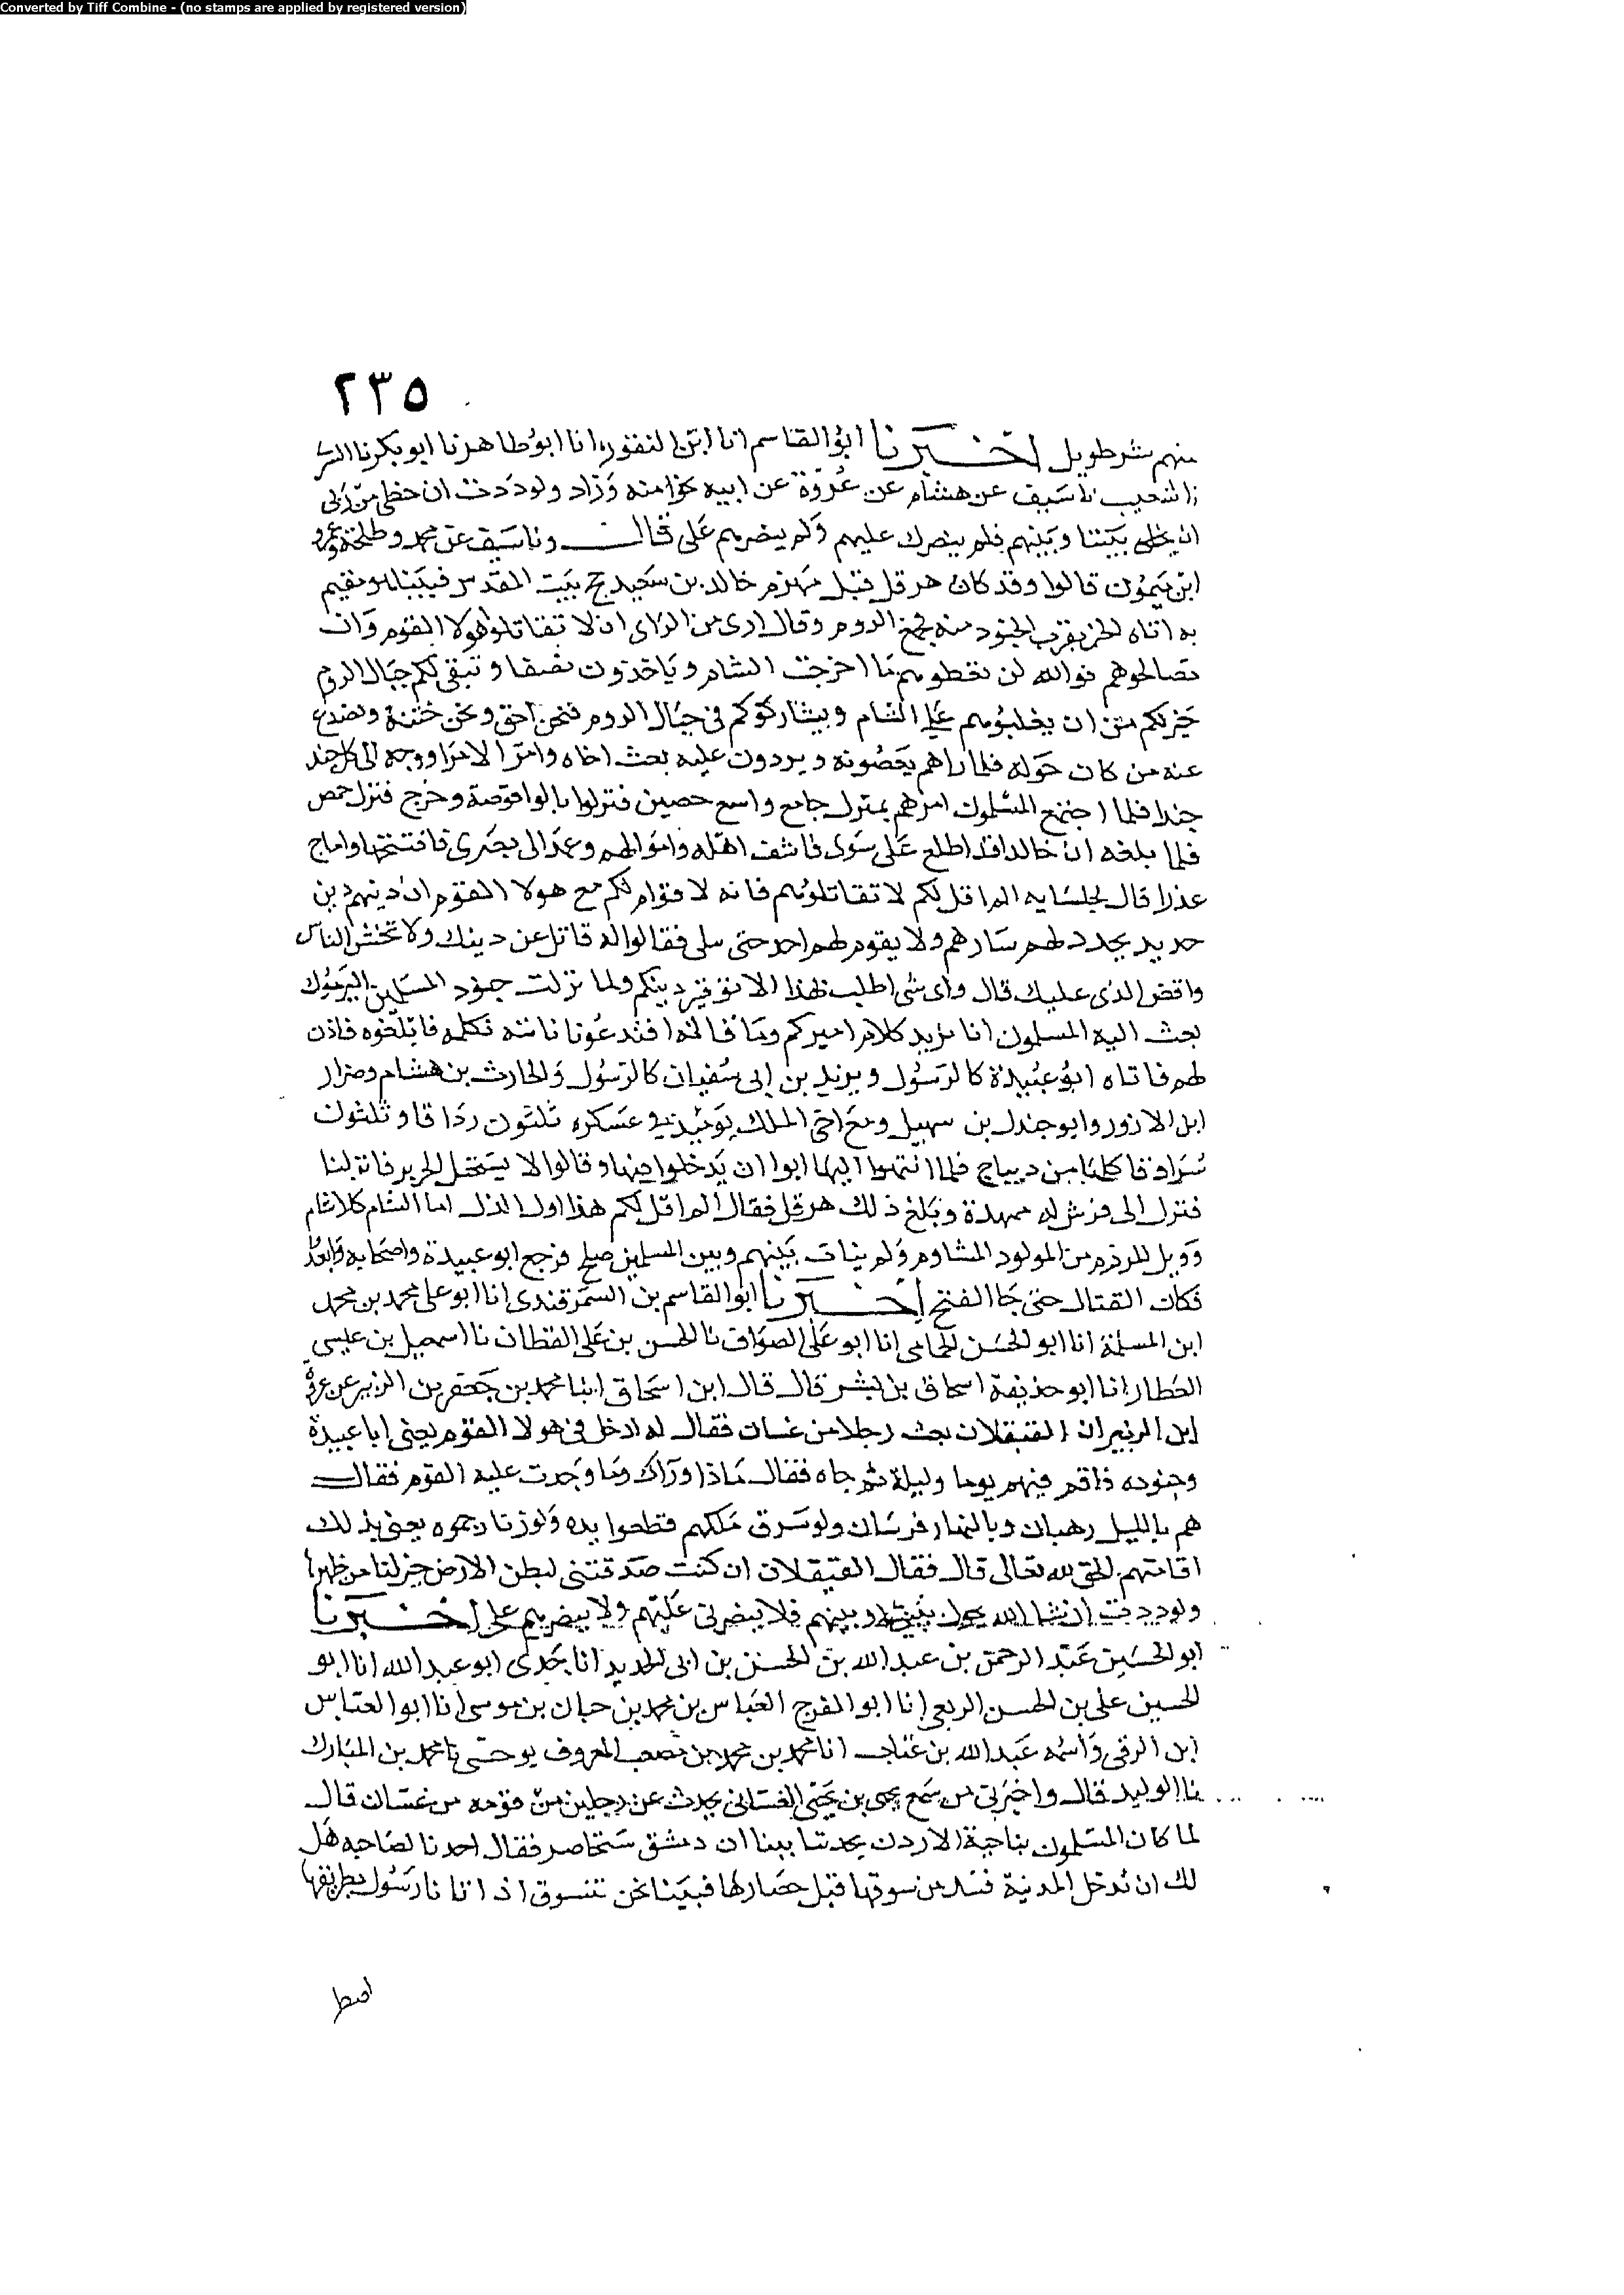 Converted by Tiff Combine - (no stamps are applied by registered version)
٢٣٥
منهم شر طويل اخبرنا ابو القاسم انا ابن النقور انا ابو طاهر نا ابو بكر نا السرى
نا شعيب نا سيف عن هشام عن عروة عن ابيه نحوا منه وزاد ولوددت ان حظى من ربى
ان يخلى بيننا وبينهم فلم ينصرك عليهم ولم ينصرهم على قال ونا سيف عن محمد وطلحة وعمرو
ابن ميمون قالوا وقد كان هرقل قبل مهزم خالد بن سعيد حج بيت المقدس فبينا هو مقيم
به اتاه الخبر بقرب الجنود منه فجمع الروم وقال ارى من الراى ان لا تقاتلوا هولا القوم وان
تصالحوهم فوالله لن تعطوهم نصف ما اخرجت الشام وياخذون نصفا وتبقى لكم جبال الروم
خير لكم من ان يغلبوكم على الشام ويشاركوكم فى جبال الروم فنخر اخوه ونخر ختنه وتصدع
عنه من كان حوله فلما راهم يعصونه ويردون عليه بعث اخاه وامر الامرا ووجه الى كل جند
جندا فلما اجتمع المسلمون امرهم بمنزل جامع واسع حصين فنزلوا بالواقوصة وخرج فنزل حمص
فلما بلغه ان خالدا قد اطلع على سوى فانتسف اهله واموالهم وعمد الى بصرى فافتتحها واباح
عذرا قال لجلسايه الم اقل لكم لا تقاتلوهم فانه لا قوام لكم مع هولا القوم ان دينهم دين
جديد يجدد لهم ثبارهم ولا يقوم لهم احد حتى يبلى فقالوا له قاتل عن دينك ولا تجبن الناس
واقض الذى عليك قال واى شى اطلب بهذا الا توقير دينكم ولما نزلت جنود المسلمين اليرموك
بعث اليه المسلمون انا نريد كلام اميركم وملاقاته افتدعونا ناتيه نكلمه فابلغوه فاذن
لهم فاتاه ابو عبيدة كالرسول ويزيد بن ابى سفيان كالرسول والحارث بن هشام وضرار
ابن الازور وابو جندل بن سهيل ومع اخى الملك يومئذ فى عسكره ثلثون رواقا وثلثون
سرادقا كلها من ديباج فلما انتهوا اليها ابوا ان يدخلوا فيها وقالوا لا نستحل الحرير فابرز لنا
فنزل الى فرش له ممهدة وبلغ ذلك هرقل فقال الم اقل لكم هذا اول الذل اما الشام فلا شام
وويل للروم من المولود المشاوم ولم يتات بينهم وبين المسلمين صلح فرجع ابو عبيدة واصحابه واتعدوا
فكان القتال حتى جا الفتح اخبرنا ابو القاسم بن السمرقندى انا ابو على محمد بن محمد
ابن المسلمة انا ابو الحسن الحمامى انا ابو على الصواف نا الحسن بن على القطان نا اسمعيل بن عيسى
العطار انا ابو حذيفة اسحاق بن بشر قال قال ابن اسحاق انبا محمد بن جعفر بن الزبير عن عروة
ابن الزبير ان القيقلان بعث رجلا من غسان فقال له ادخل فى هولا القوم يعنى ابا عبيدة
وجنوده فاقم فيهم يوما وليلة ثم جاه فقال ماذا وراك وما وجدت عليه القوم فقال
هم بالليل رهبان وبالنهار فرسان ولو سرق ملكهم قطعوا يده ولو زنا رجموه يعنى بذلك
اقامتهم الحق لله تعالى قال فقال القيقلان ان كنت صدقتنى لبطن الارض خير لنا من ظهرها
ولوددت ان شا الله يحول بينى وبينهم فلا ينصرنى عليهم ولا ينصرهم على اخبرنا
ابو الحسين عبد الرحمن بن عبد الله بن الحسن بن ابى الحديد انا جدى ابو عبد الله انا ابو
الحسين على بن الحسن الربعى انا ابو الفرج العباس بن محمد بن حبان بن موسى انا ابو العباس
ابن الزفتى واسمه عبد الله بن عتاب انا محمد بن محمد بن مصعب المعروف بوحشى نا محمد بن المبارك
نا الوليد قال واخبرنى من سمع يحيى بن يحيى الغسانى يحدث عن رجلين من قومه من غسان قال
لما كان المسلمون بناحية الاردن تحدثنا بيننا ان دمشق ستحاصر فقال احدنا لصاحبه هل
لك ان ندخل المدينة فنشترى من سوقها قبل حصارها فبينا نحن نتسوق اذ اتانا رسول بطريقها